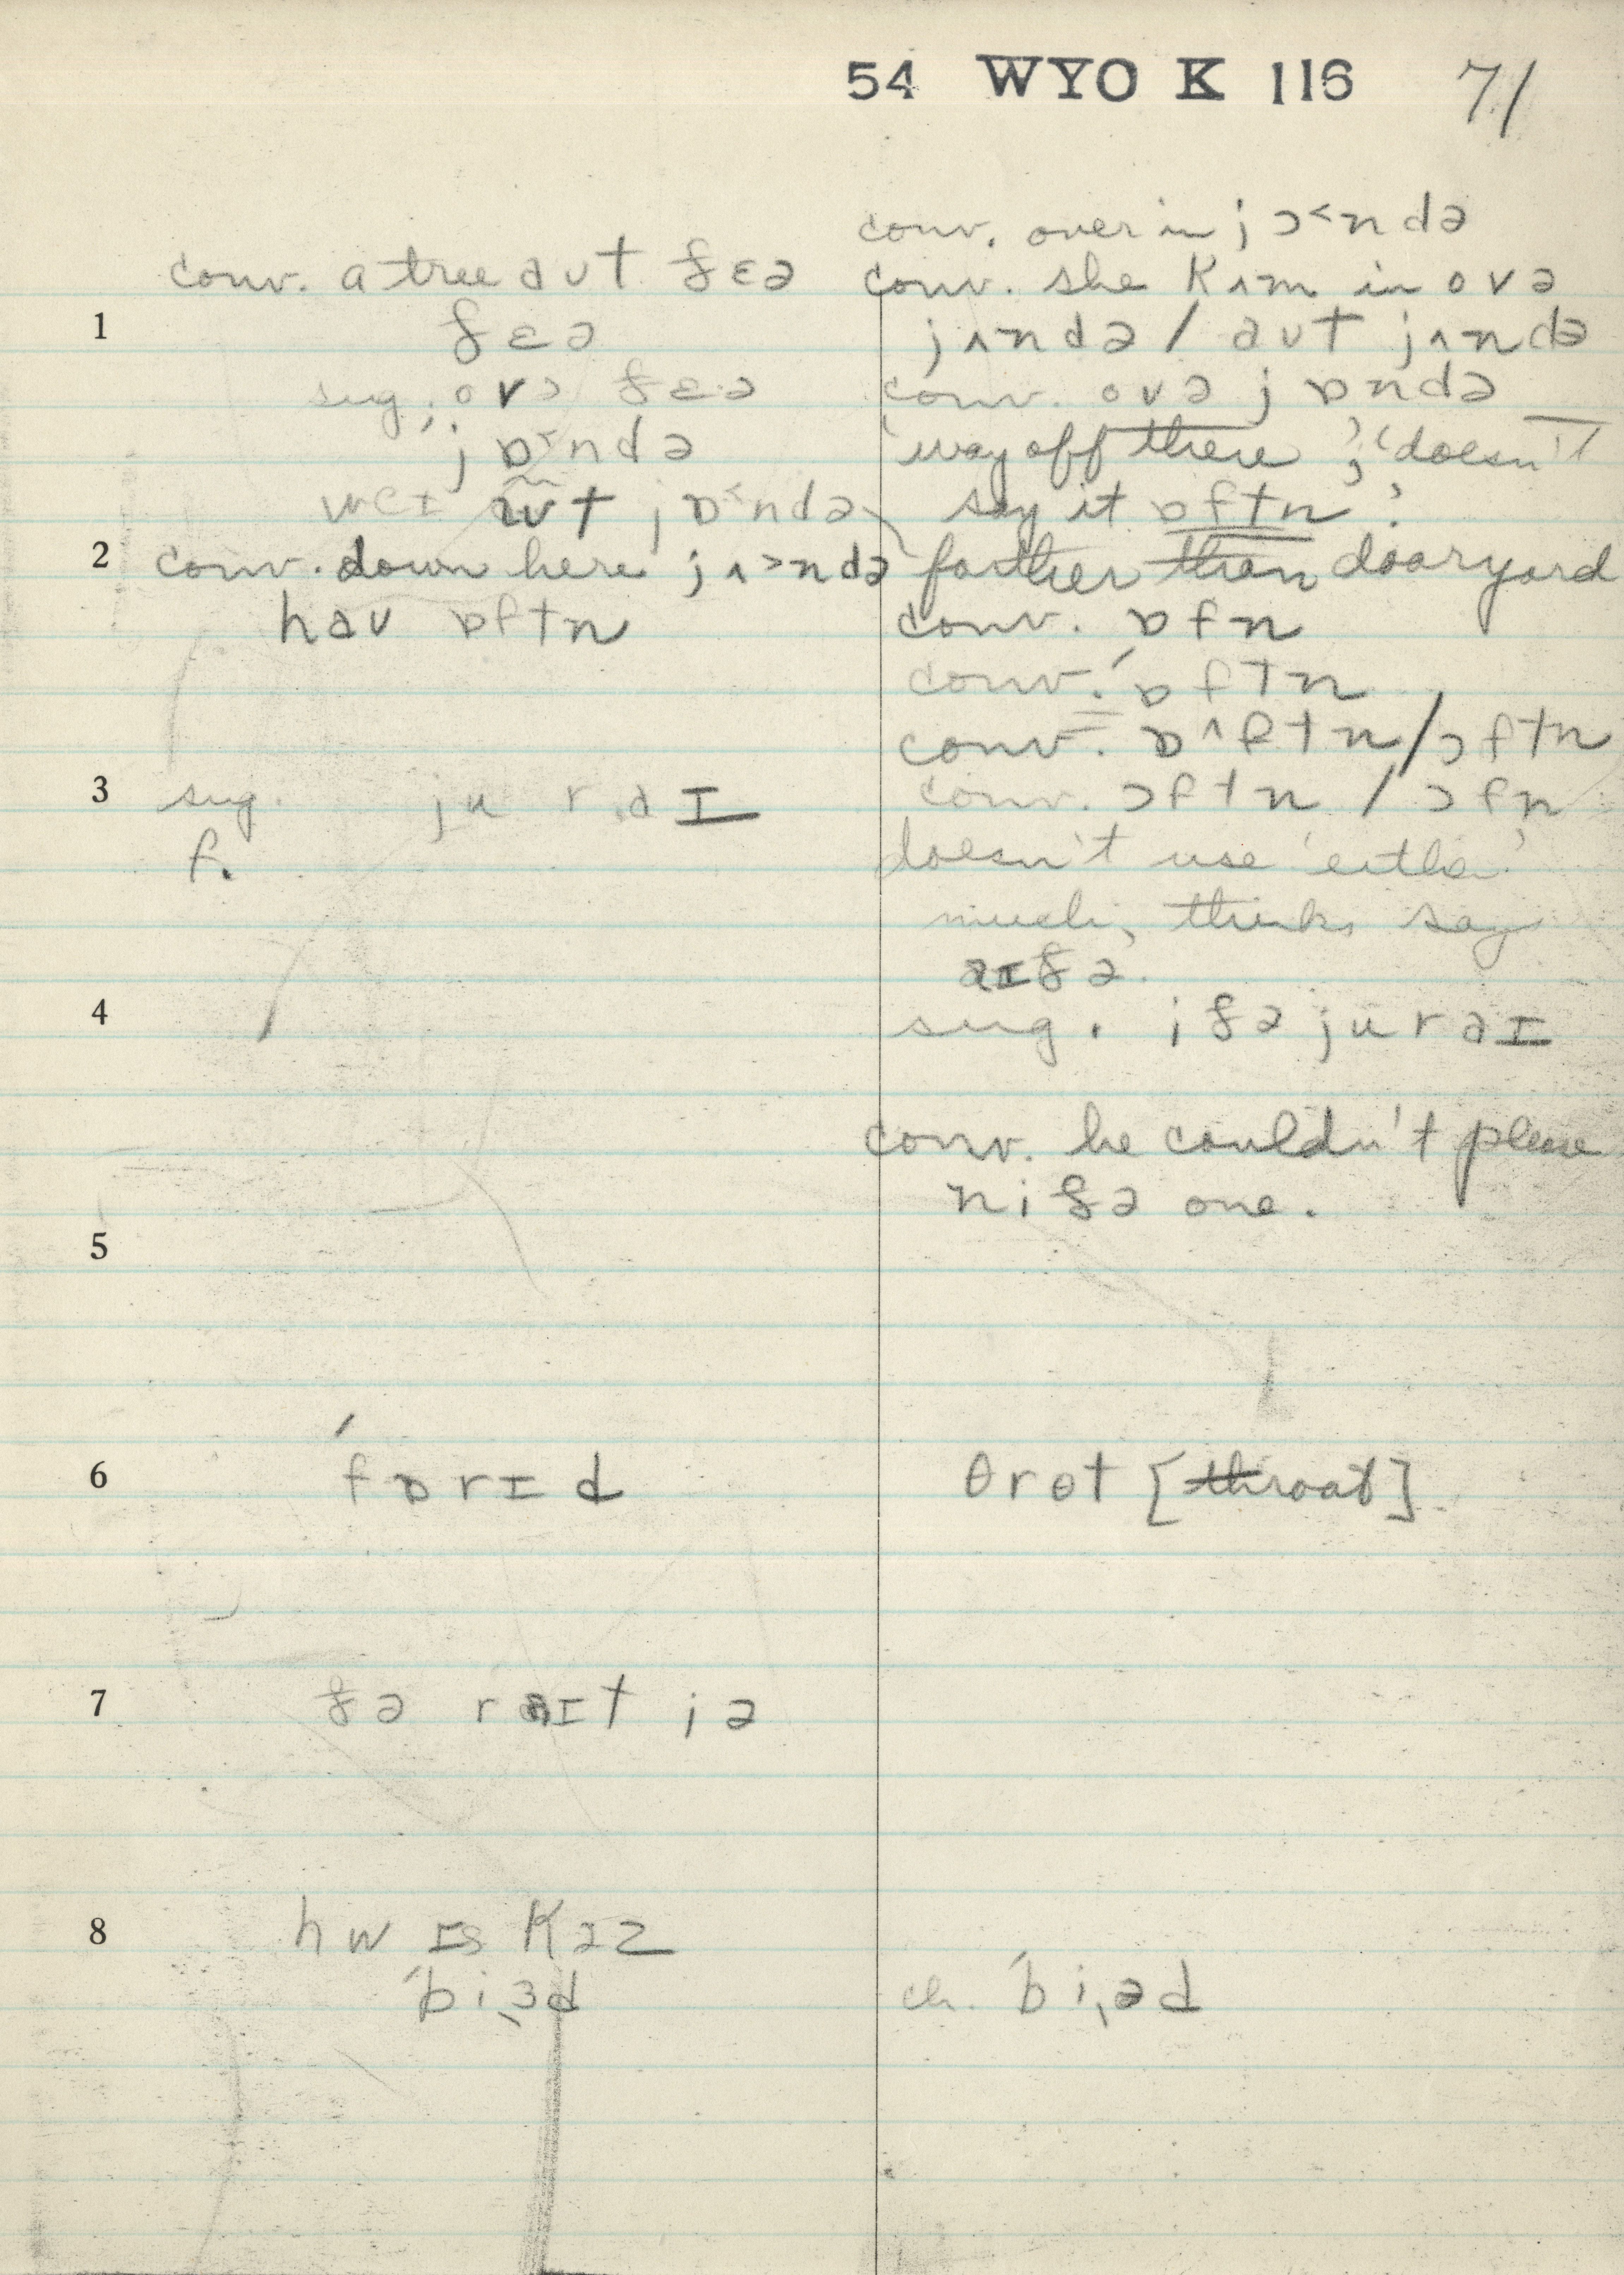 54 WYO K 116 71
conv. a tree aʊt ðɛə
1 ðɛə
sug. ovə ðɛ·ə
jɒ˂ndə
ʊt jɒ˂ndə
2 conv. down here jʌ˃ndə
hav ɒftn
3 sug. ju r aɪ
f.
4
5
6 ˈfɒrɪd
7 ðə raɪt iə
8 hw ɪs Kɜz
ˈbiˌɜd
conv. over in jɔ˂ndə
conv. she Kʌm in ovə
jʌndə / aʊt jʌndə
conv. ovə jɒndə
'way off there'; 'doesn't
say it ɒftn'
farther than dooryard
conv. ɒfn
conv. ˈɒftn
conv. ɒ^ftn/ɔftn
conv. ɔftn / ɔfn
doesn't use 'either'
much, thinks say
aɪðə.
sug. iðə ju r aɪ
conv. he couldn't please
niðə one.
θrɵt [throat]
ch. ˈbiˌəd